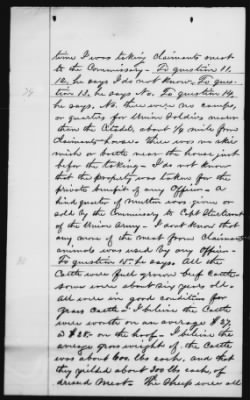 time I was taking claimants meat
to the Commissary - To question 11,
12, he says I do not know. To ques-
tion 13, he says No. To question 14,
he says. No. there were no camps,
or quarters for Union Soldiers nearer
than the Citadel, about 3/4 mile from
claimants house - there was no skir
mish or battle near the house just
before the taking - I do not know
that the property was taken for the
private benefit of any Officer - A
hind quarter of mutton was given or
sold by the Commissary to Capt
of the Union Army - I do not know that
any more of the meat from Claimants
animals was used by any Officer -
To question 15, he says. All the
Cattle were full grown beef cattle -
some were about six years old -
all were in good condition for
grass Cattle - I believe the Cattle
were worth on an average $27,
a $28 - on the hoof - I believe the
average gross weight of the Cattle
was about 600 lbs each, and that
they yielded about 300 lbs each, of
dressed Meat - The Sheep were all